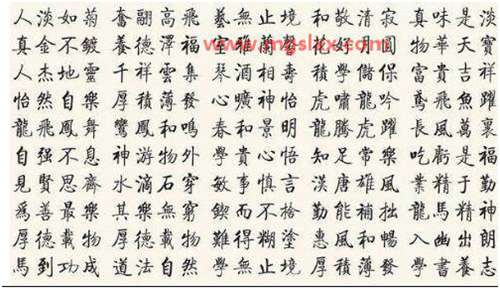 人淡如菊 奮翮高飛 藝無止境 和敬清寂 真味是淡
www.mgslxx.com
真金不鍍 養德澤福 室雅蘭馨 花好月圓 物華天寶
人杰地靈 千祥雲集 琴酒相壽 積學儲保 富貴吉祥
怡然自樂 厚積薄發 心曠神怡 虎嘯龍吟 鳶飛魚躍
龍飛鳳舞 鸞鳳和鳴 春和景明 龍騰虎躍 長風萬裹
自强不息 神游物外 學貴心悟 知足常樂 吃虧是福
見賢思齋 水滴石穿 敏事慎言 漢唐雄風 業精于勤
爲善最樂 其樂無窮 鍥而不捨 勤能補拙 龍馬精神
厚德載物 厚德載物 難得糊塗 惠風和暢 入幽出朗
馬到功成 道法自然 學無止境 厚積薄發 學書養志